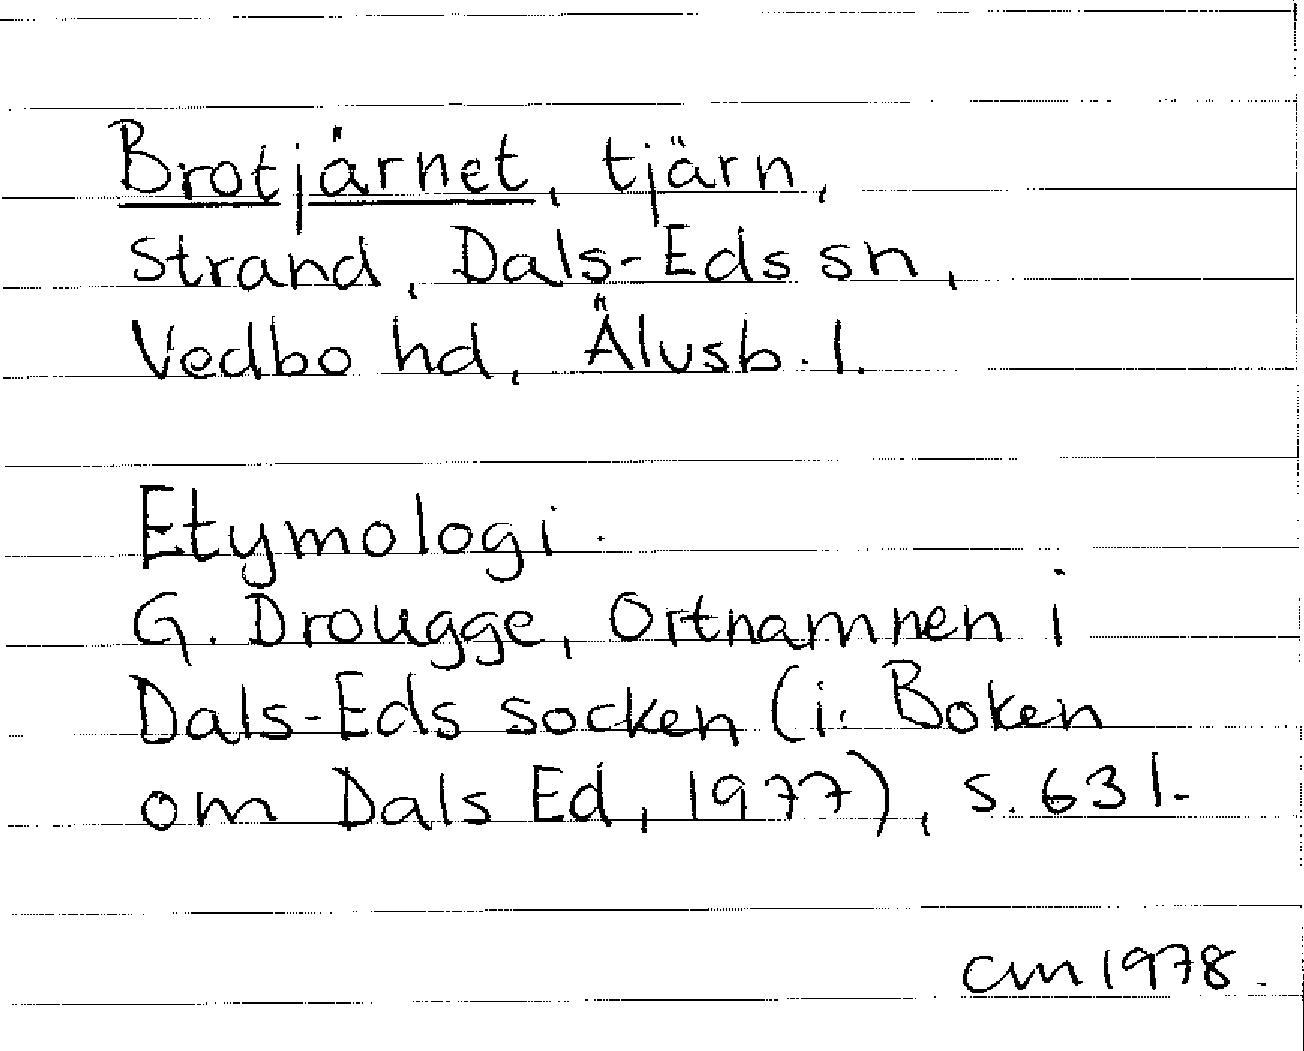 Brotjärnet, tjärn,
Strand, Dals-Eds sn,
Vedbo hd, Älvsb. l.
Etymologi.
G. Drougge, Ortnamnen i
Dals-Eds socken (i: Boken
om Dals Ed, 1977), s. 631.
CM 1978.